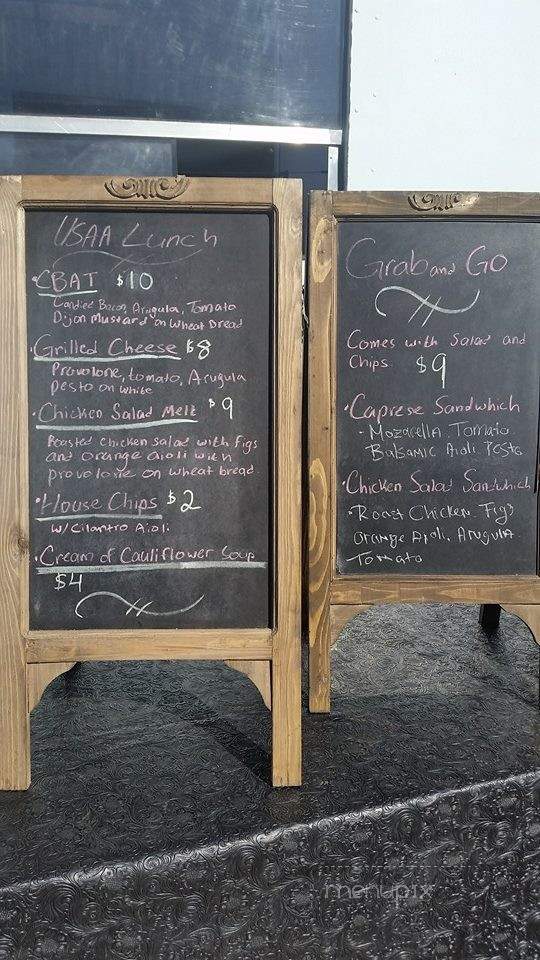 USAA Lunch
• CBAT $10
Candied Bacon, Arugula, Tomato
Dijon Mustard on Wheat Bread
• Grilled Cheese $8
Provolone, tomato, Arugula
pesto on white
• Chicken Salad Melt $9
Roasted chicken salad with figs
and orange aioli with
provolone on wheat bread
• House Chips $2
w/ Cilantro Aioli
• Cream of Cauliflower Soup
$4
Grab and Go
Comes with Salad and
Chips $9
• Caprese Sandwhich
- Mozarella, Tomato,
Balsamic Aioli, Pesto
• Chicken Salad Sandwhich
• Roast Chicken, Figs
Orange Aioli, Arugula
Tomato
menupix